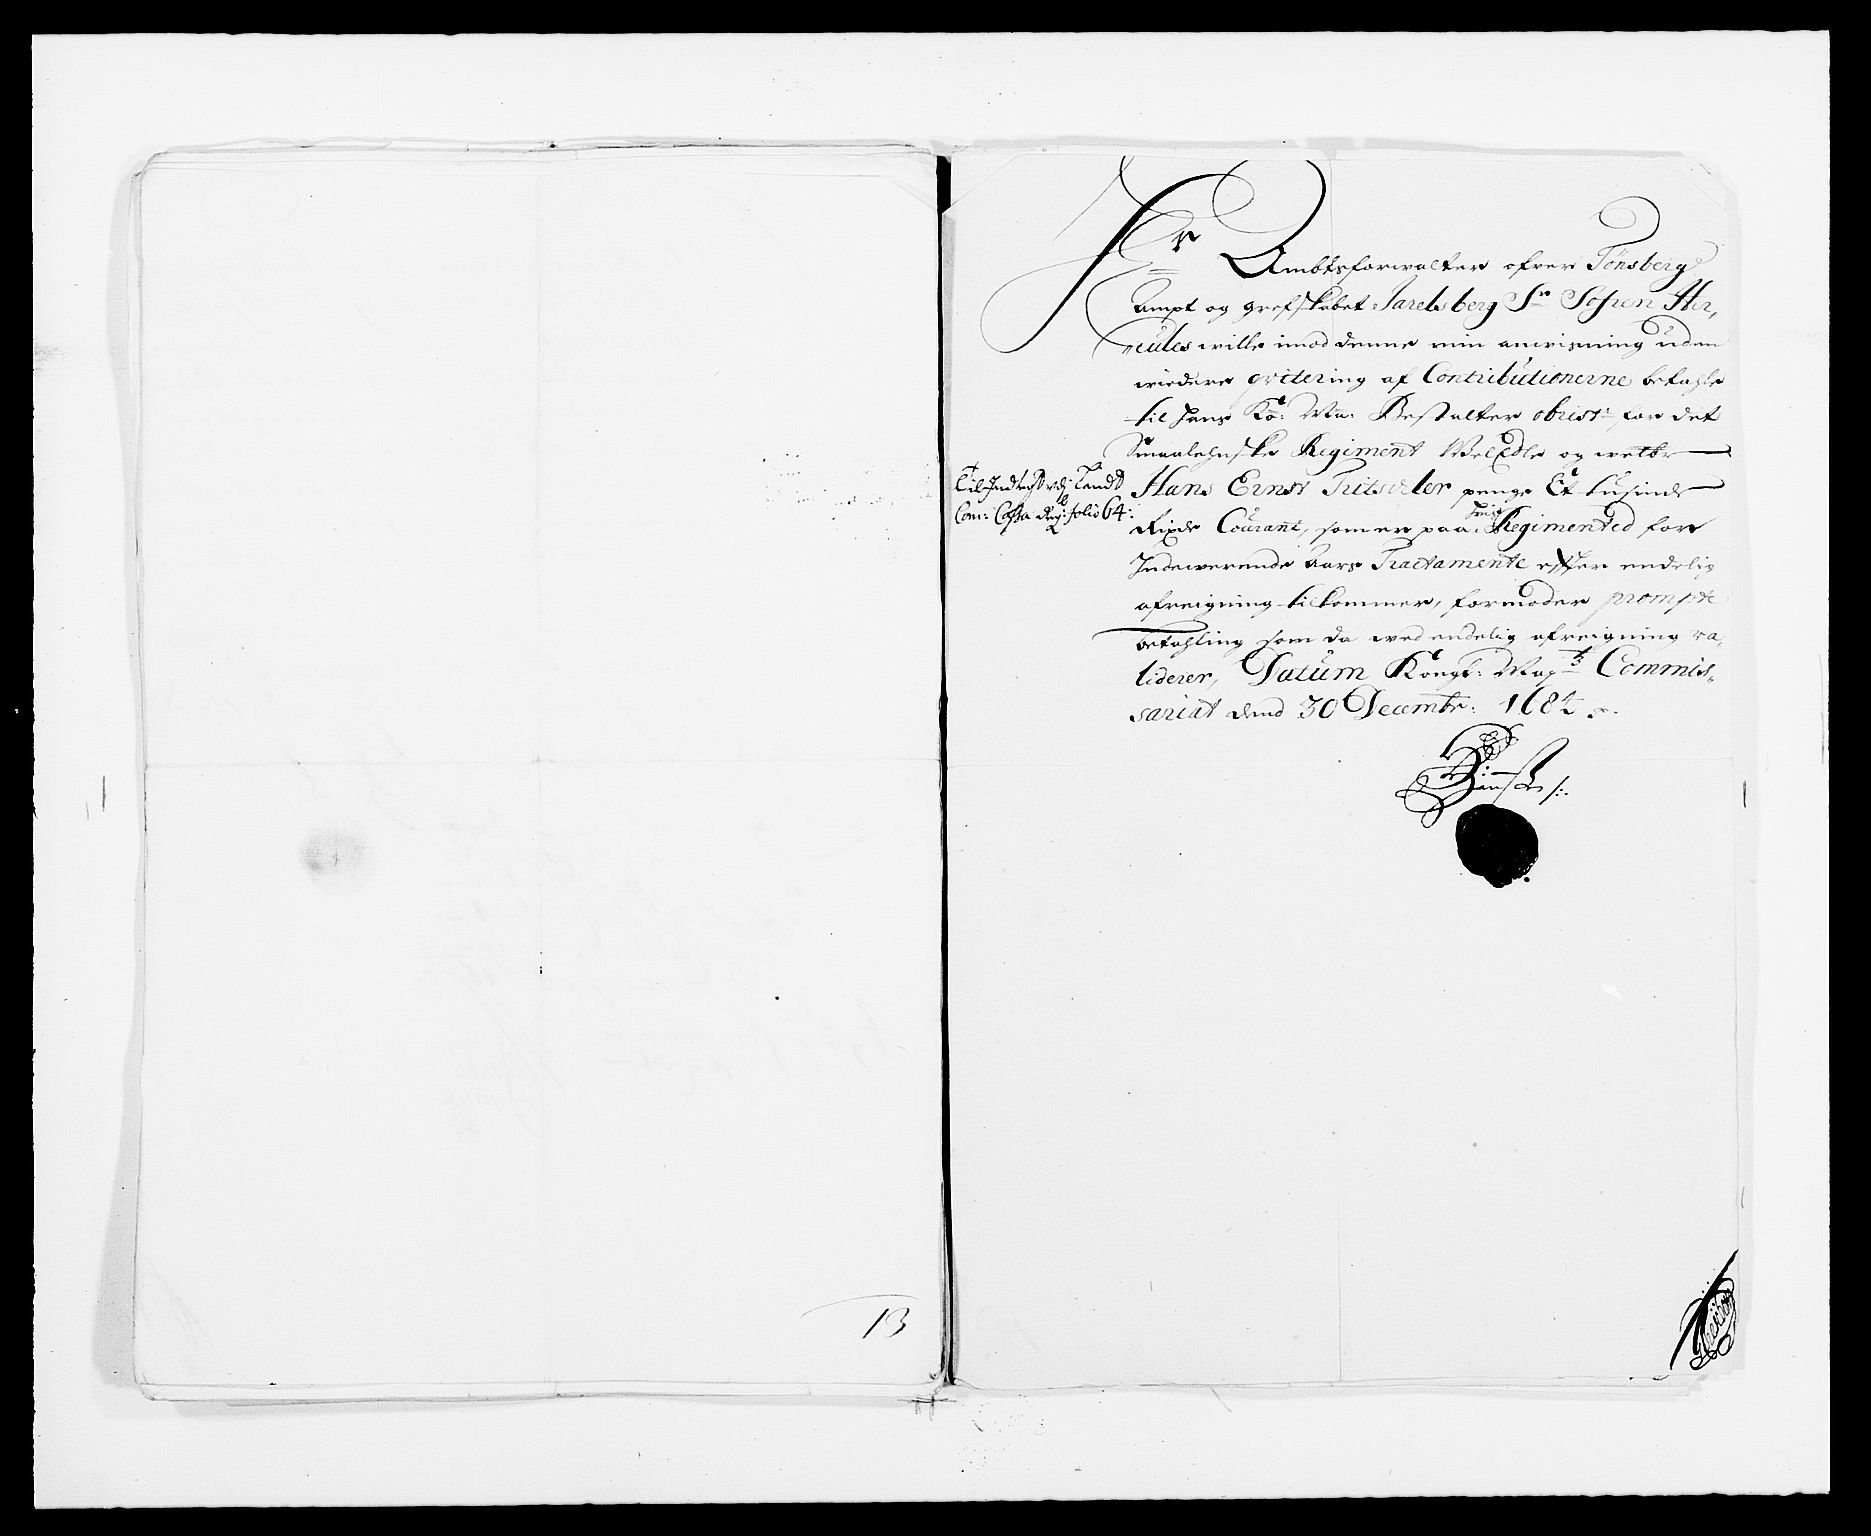 Hr Ambtsforwalter ofver Tönsberg
Ampt og grefskabet Jarelsberg Sr Sofren Her,
cules wille imod denne min anvisning uden
widere qvitering af Contributionerne betahle
til Hans Kö: Ma: Bestalter obrist for det
Smaalehnske Regiment Wel Edle og welbr
Hans Ernst Tritscler penge Et tusinde
Rixdr Courant, som er paa Regimented for
Indewerende Aars Tractamente efter endelig
afreigning tilkommer, formoder prompte
betahling som da wed endelig afreigning va,
liderer, Datum Kongl: Mayts Commis,,
sariat dend 30 Decembr: 1684
Til Indtegt udj Landt
Com: Cassa Reg: folio 64:
13